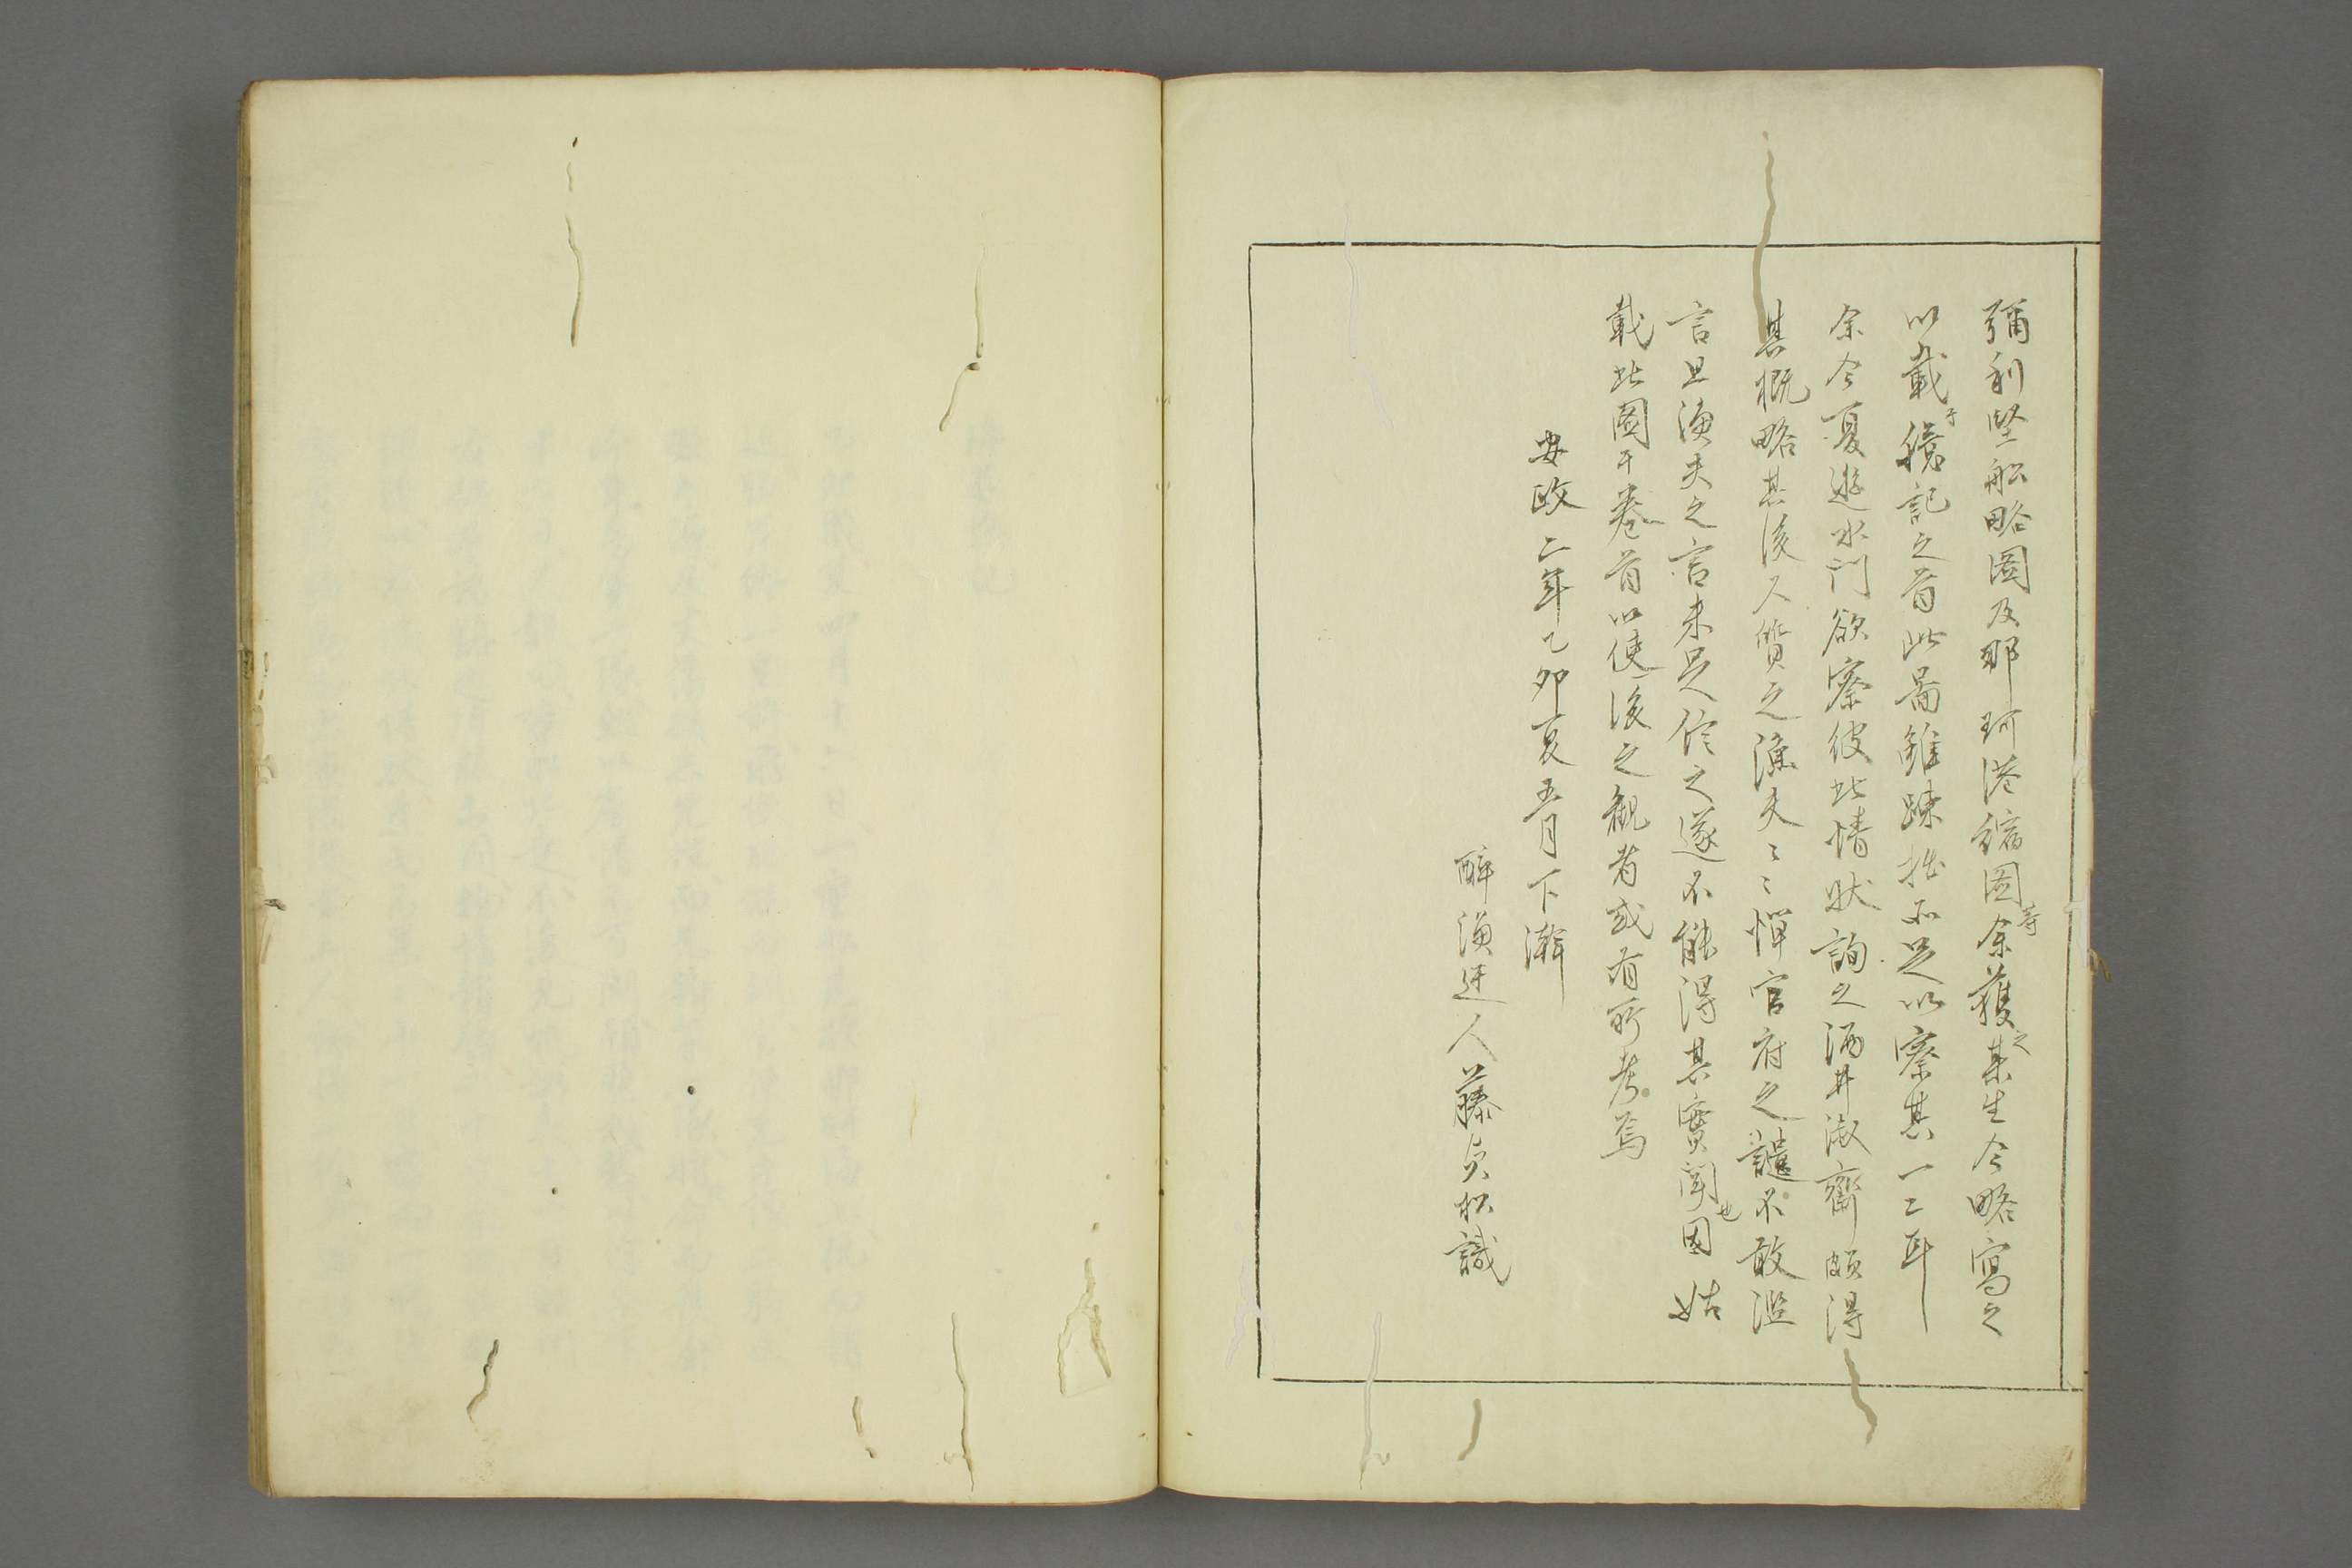 彌利堅船略圖及那珂港縮圖等余獲之某生今略寫之
以載于穢記之首此圖雖疎拙不足以察其一二耳
余今夏遊水門欲察彼此情狀詢之酒井淑齋頗得
其概略其後人質之漁夫〻〻憚官府之譴不敢濫
言且漁夫之言未足信之遂不能得其實聞也因姑
載此圖于卷首以使後之觀者或有所考焉
安政二年乙卯夏五月下澣
醉漁迂人藤貞松識